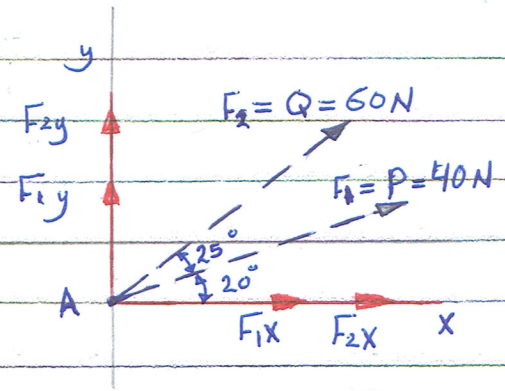 y
F₂y
F₂ = Q = 60N
F₁y
F₁ = P = 40N
25°
20°
A
F₁x
F₂x
x